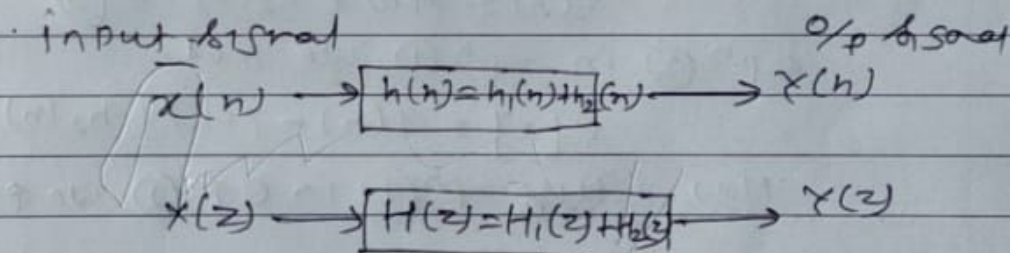 input signal O/p signal
x(n) → h(n)=h₁(n)+h₂(n) → y(n)
X(z) → H(z)=H₁(z)+H₂(z) → Y(z)